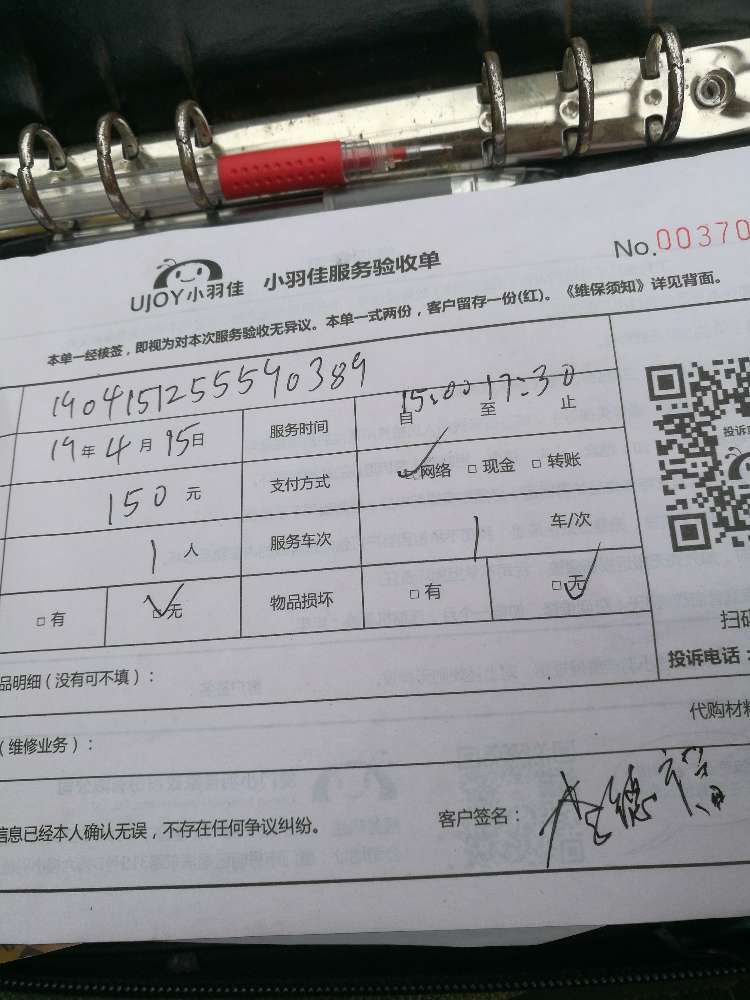 UJOY小羽佳 小羽佳服务验收单 No.00370
本单一经核签，即视为对本次服务验收无异议。本单一式两份，客户留存一份(红)。《维保须知》详见背面。
1904151255590389
19年4月15日 服务时间 自15:00至17:30止
150元 支付方式 ☑网络 □现金 □转账
1人 服务车次 1 车/次
□有 ☑无 物品损坏 □有 ☑无
品明细（没有可不填）：
（维修业务）：
信息已经本人确认无误，不存在任何争议纠纷。 客户签名：
投诉
扫码
投诉电话：
代购材料